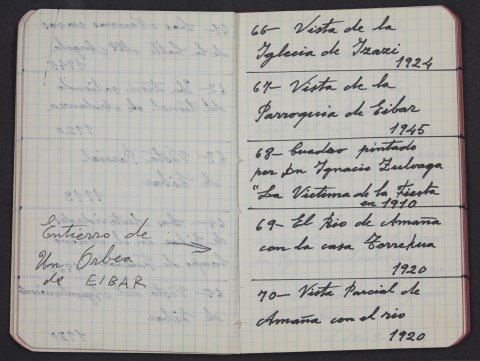 Entierro de
Un Orbea
de EIBAR
66- Vista de la
Iglecia de Izazi
1924
67- Vista de la
Parroquia de Eibar
1945
68- Cuadro pintado
por Dn Ignacio Zuloaga
"La Victima de la Fiesta
en 1910
69- El Rio de Amaña
con la casa Torrekua
1920
70- Vista Parcial de
Amaña con el rio
1920